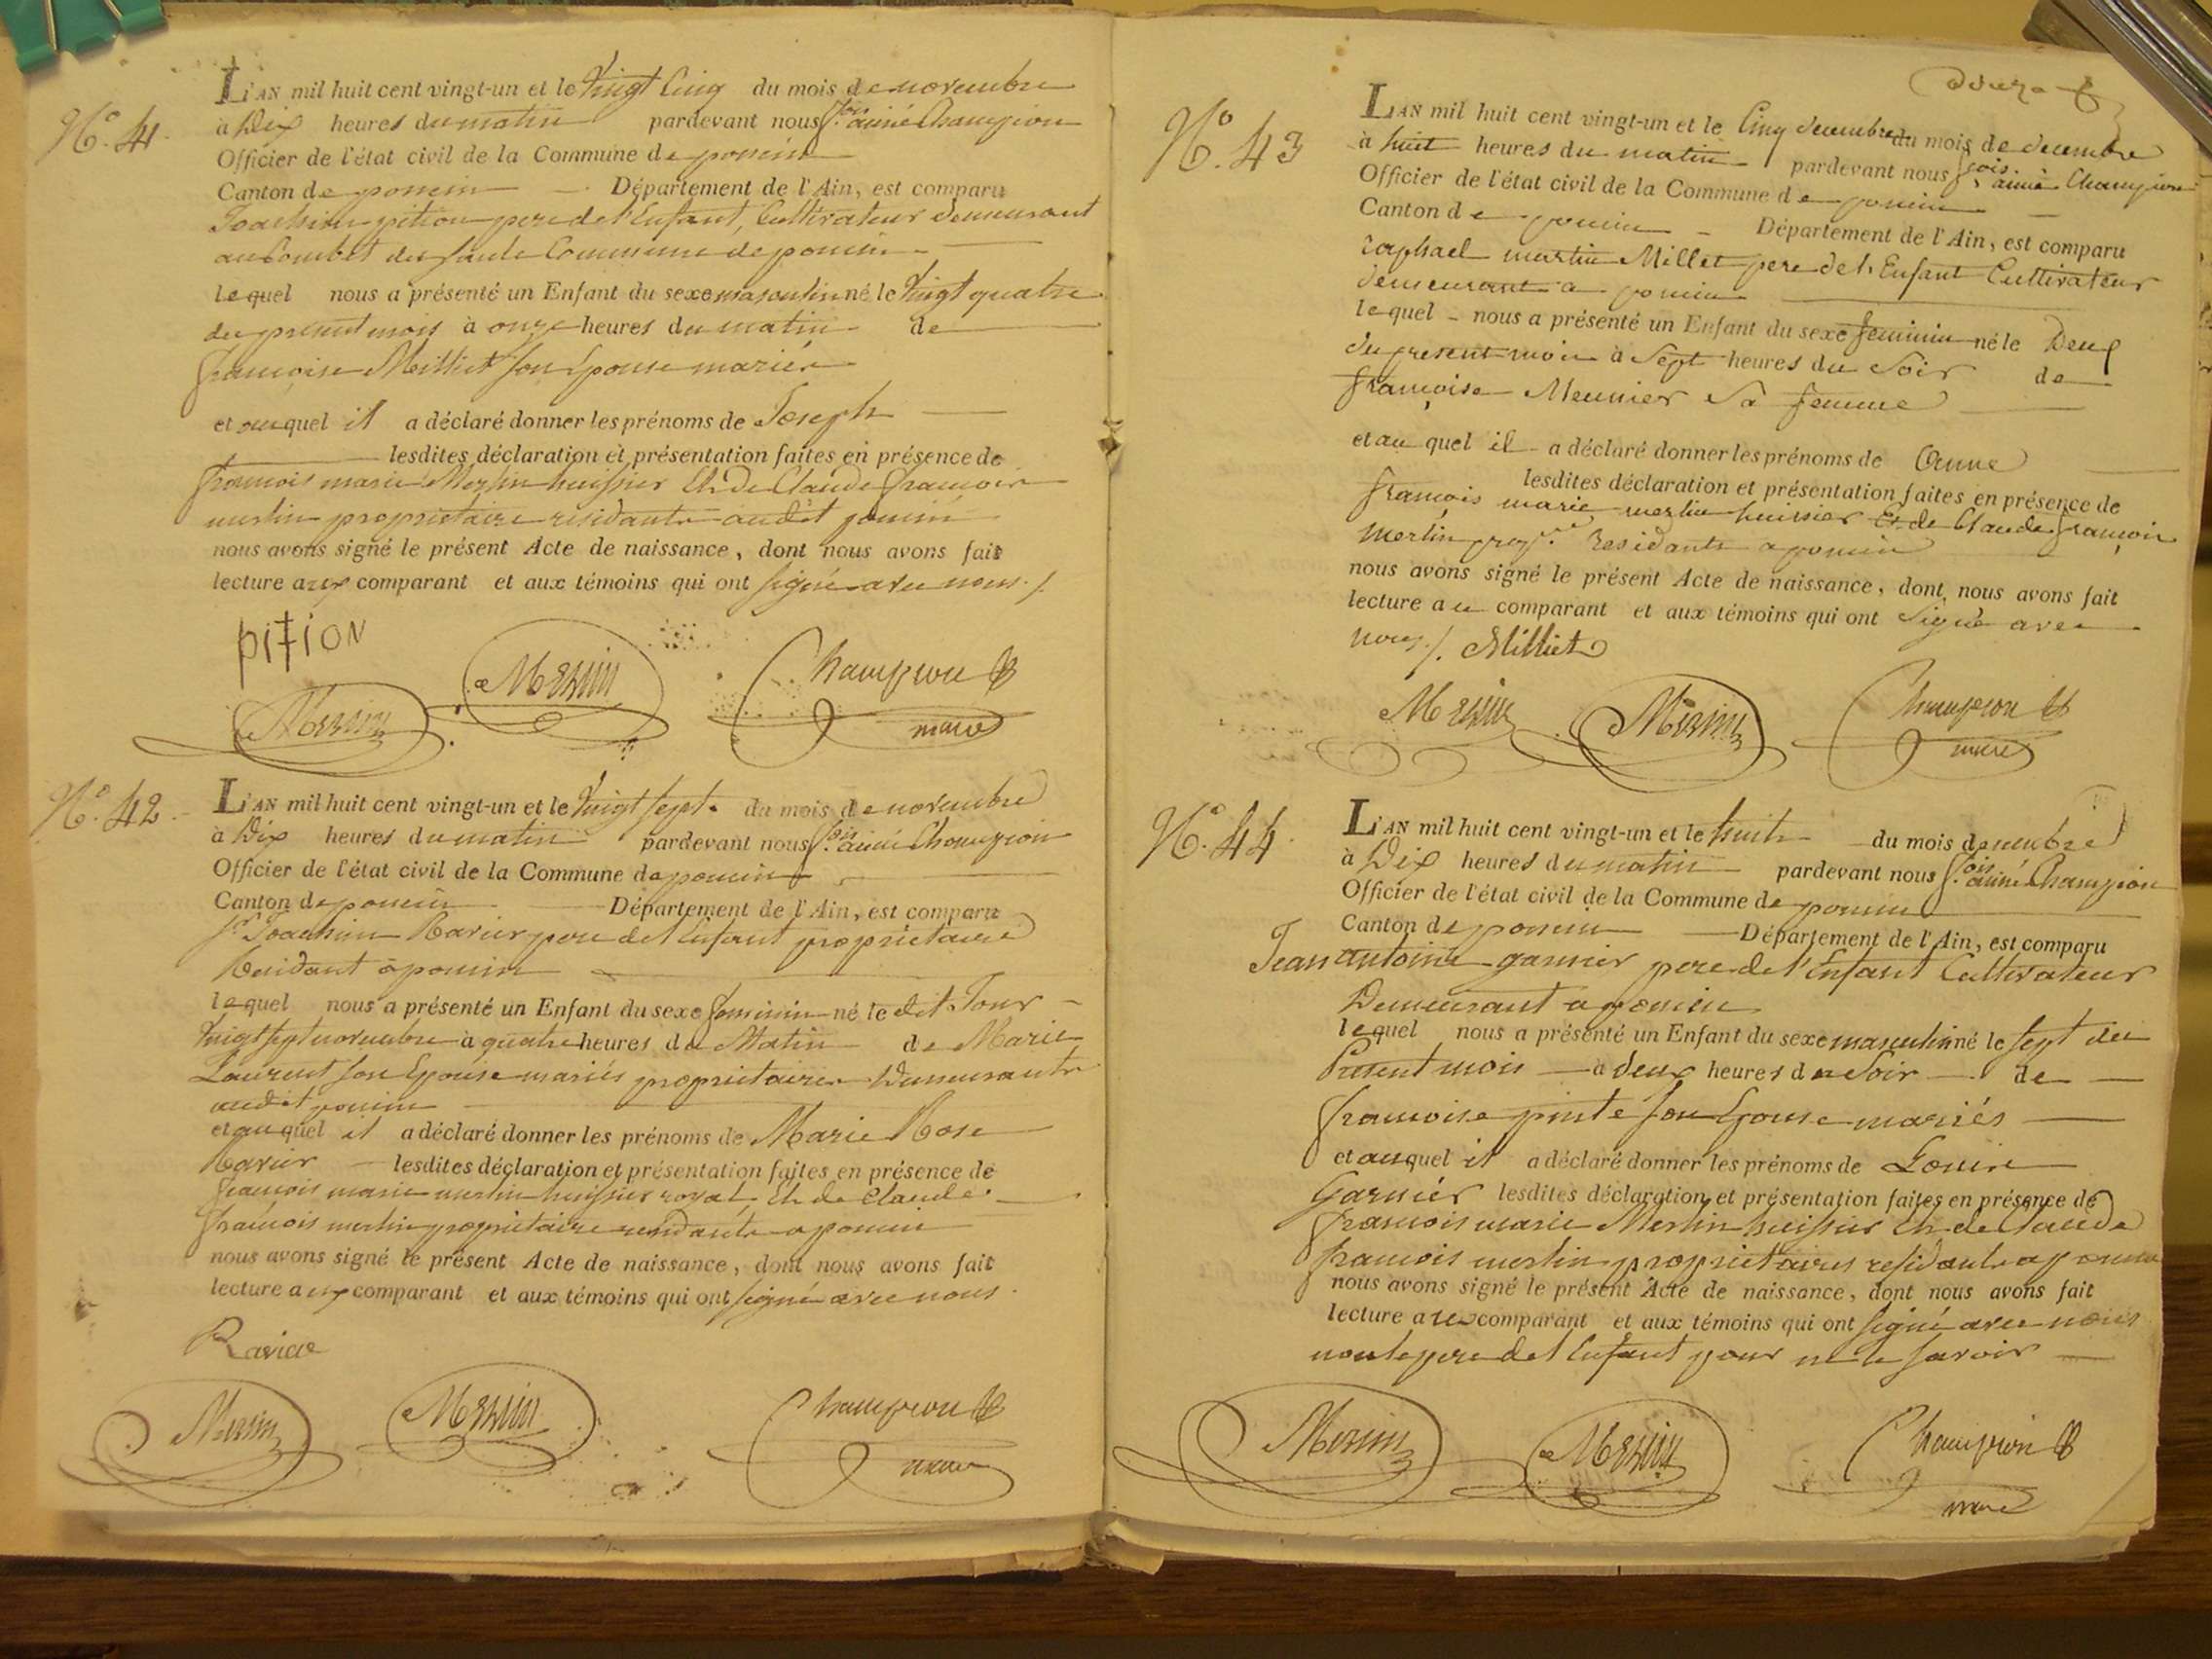 N.° 41.
L'AN mil huit cent vingt-un et le vingt cinq du mois de novembre
à Dix heures du matin pardevant nous f.ois aimé Champion
Officier de l'état civil de la Commune de poncin
Canton de poncin Département de l'Ain, est comparu
Joachim pition pere de l'Enfant, Cultivateur demeurant
au Commune de poncin
lequel nous a présenté un Enfant du sexe masculin né le vingt quatre
du present mois à onze heures du matin de
françoise Milliet son Epouse mariés
et auquel il a déclaré donner les prénoms de Joseph
lesdites déclaration et présentation faites en présence de
françois marie Merlin huissier Et De Claude françois
merlin proprietaire residants audit poncin
nous avons signé le présent Acte de naissance, dont nous avons fait
lecture aux comparant et aux témoins qui ont signé avec nous ./.
pition
Merlin
Merlin
Champion
maire
N.° 42.
L'AN mil huit cent vingt-un et le vingt sept du mois de novembre
à Dix heures du matin pardevant nous f.ois aimé Champion
Officier de l'état civil de la Commune de poncin
Canton de poncin Département de l'Ain, est comparu
Sr Joachim Ravier pere de l'Enfant proprietaire
Residant à poncin
lequel nous a présenté un Enfant du sexe feminin né le dit Jour
vingt sept novembre à quatre heures du Matin de Marie
Laurent son Epouse mariés proprietaires Demeurants
audit poncin
et auquel il a déclaré donner les prénoms de Marie Rose
Ravier lesdites déclaration et présentation faites en présence de
françois marie merlin huissier royal, Et de Claude
françois merlin proprietaire residants a poncin
nous avons signé le présent Acte de naissance, dont nous avons fait
lecture aux comparant et aux témoins qui ont signé avec nous.
Ravier
Merlin
Merlin
Champion
maire
N.° 43
L'AN mil huit cent vingt-un et le Cinq decembre du mois de decembre
à huit heures du matin pardevant nous f.ois aimé Champion
Officier de l'état civil de la Commune de poncin
Canton de poncin Département de l'Ain, est comparu
raphael martin Milliet pere de l'Enfant Cultivateur
demeurant a poncin
lequel nous a présenté un Enfant du sexe feminin né le Deux
du present mois à Sept heures du Soir de
françoise Meunier Sa femme
et au quel il a déclaré donner les prénoms de Anne
lesdites déclaration et présentation faites en présence de
françois marie merlin huissier Et de Claude françois
Merlin prop.re Residants a poncin
nous avons signé le présent Acte de naissance, dont nous avons fait
lecture au comparant et aux témoins qui ont Signé avec
nous ./. Milliet
Merlin
Merlin
Champion
maire
N.° 44
L'AN mil huit cent vingt-un et le huit du mois de
à Dix heures du matin pardevant nous f.ois aimé Champion
Officier de l'état civil de la Commune de poncin
Canton de poncin Département de l'Ain, est comparu
Jean antoine garnier pere de l'Enfant Cultivateur
Demeurant a poncin
lequel nous a présenté un Enfant du sexe masculin né le sept du
Present mois à deux heures du Soir de
françoise son Epouse mariés
et auquel il a déclaré donner les prénoms de Louis
Garnier lesdites déclaration et présentation faites en présence de
françois marie Merlin huissier Et de Claude
françois merlin proprietaires residants a poncin
nous avons signé le présent Acte de naissance, dont nous avons fait
lecture aux comparant et aux témoins qui ont signé avec nous
non le pere de l'Enfant pour ne le savoir
Merlin
Merlin
Champion
maire